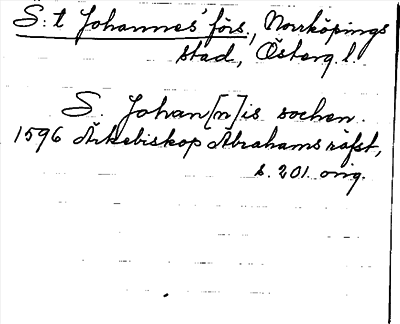 S:t Johannes' förs., Norrköpings
stad, Österg. l.
S. Johan[n]is sochen.
1596 Ärkebiskop Abrahams räfst,
s. 201. orig.